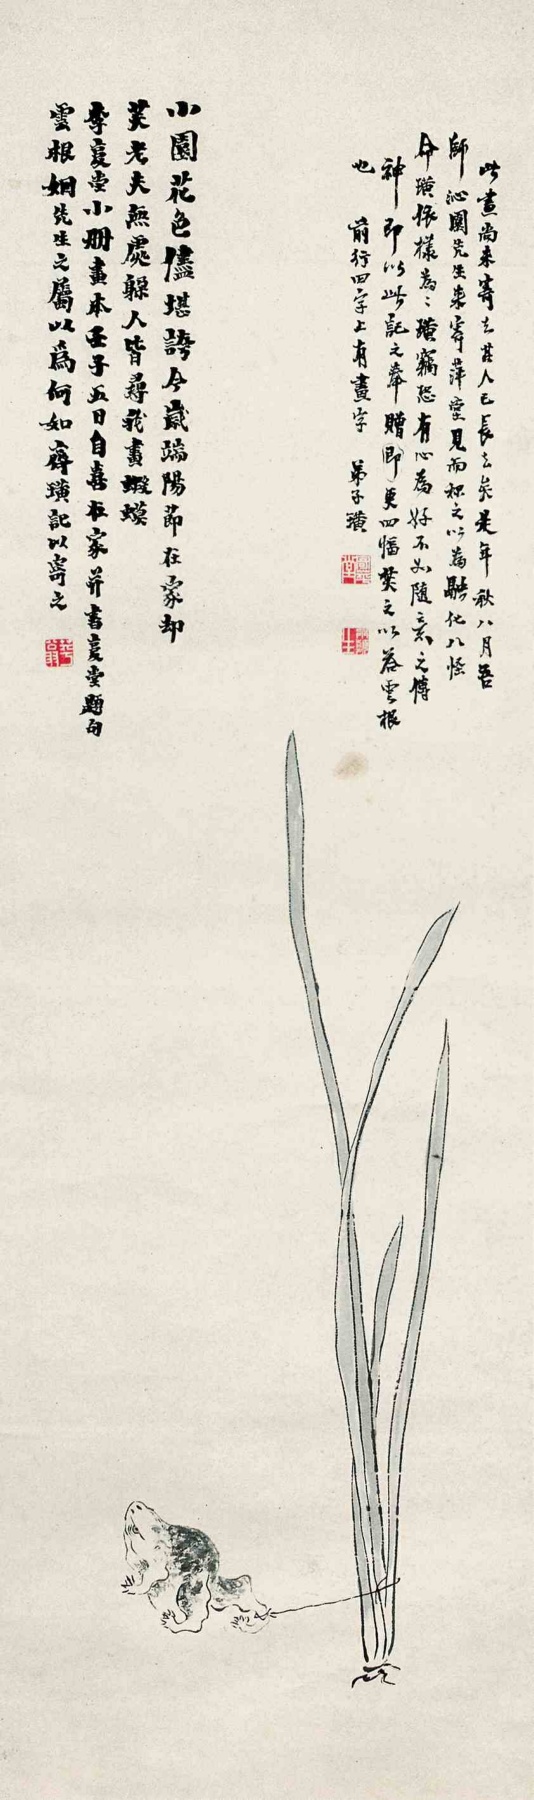 此畫尚未寄去其人已長去矣是年秋八月吾
師沁園先生來寄萍堂見而称之以為融化八怪
命璜依樣為之璜竊恐有心為好不如隨意之傳
神即以此記之奉贈即更四幅焚之以荅雲根
也 前行四字上有畫字 弟子璜
小園花色儘堪誇今歲端陽節在家却
笑老夫無處躲人皆尋我畫蝦蟆
李復堂小冊畫本壬子五日自喜在家并書復堂題句
雲根姻先生之屬以為何如齊璜記以寄之